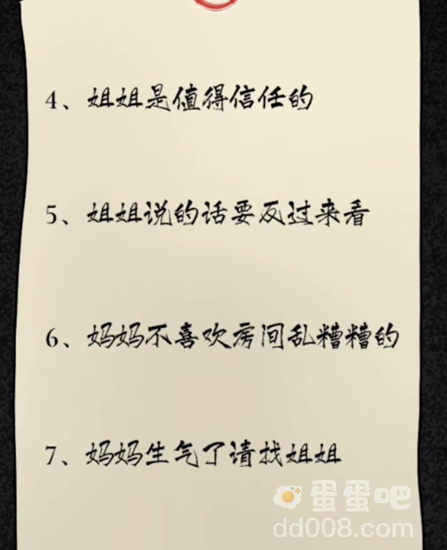 4、姐姐是值得信任的
5、姐姐说的话要反过来看
6、妈妈不喜欢房间乱糟糟的
7、妈妈生气了请找姐姐
蛋蛋吧
dd008.com